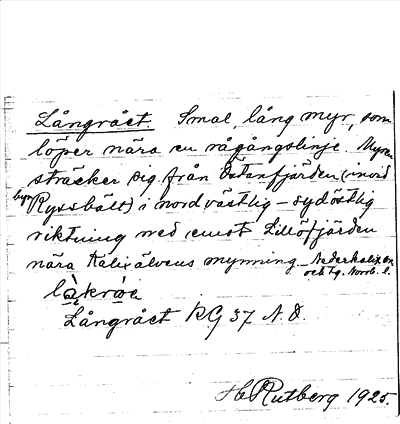 Långrået. Smal, lång myr, som
löper nära en rågångslinje. Myren
sträcker sig från Östanfjärden (invid
byn Ryssbält) i nordvästlig – sydöstlig
riktning ned emot Lillöfjärden
nära Kalixälvens mynning. Nederkalix sn.
och tg. Norrb. l.
Långrået RG 37 N.O.
H Rutberg 1925.